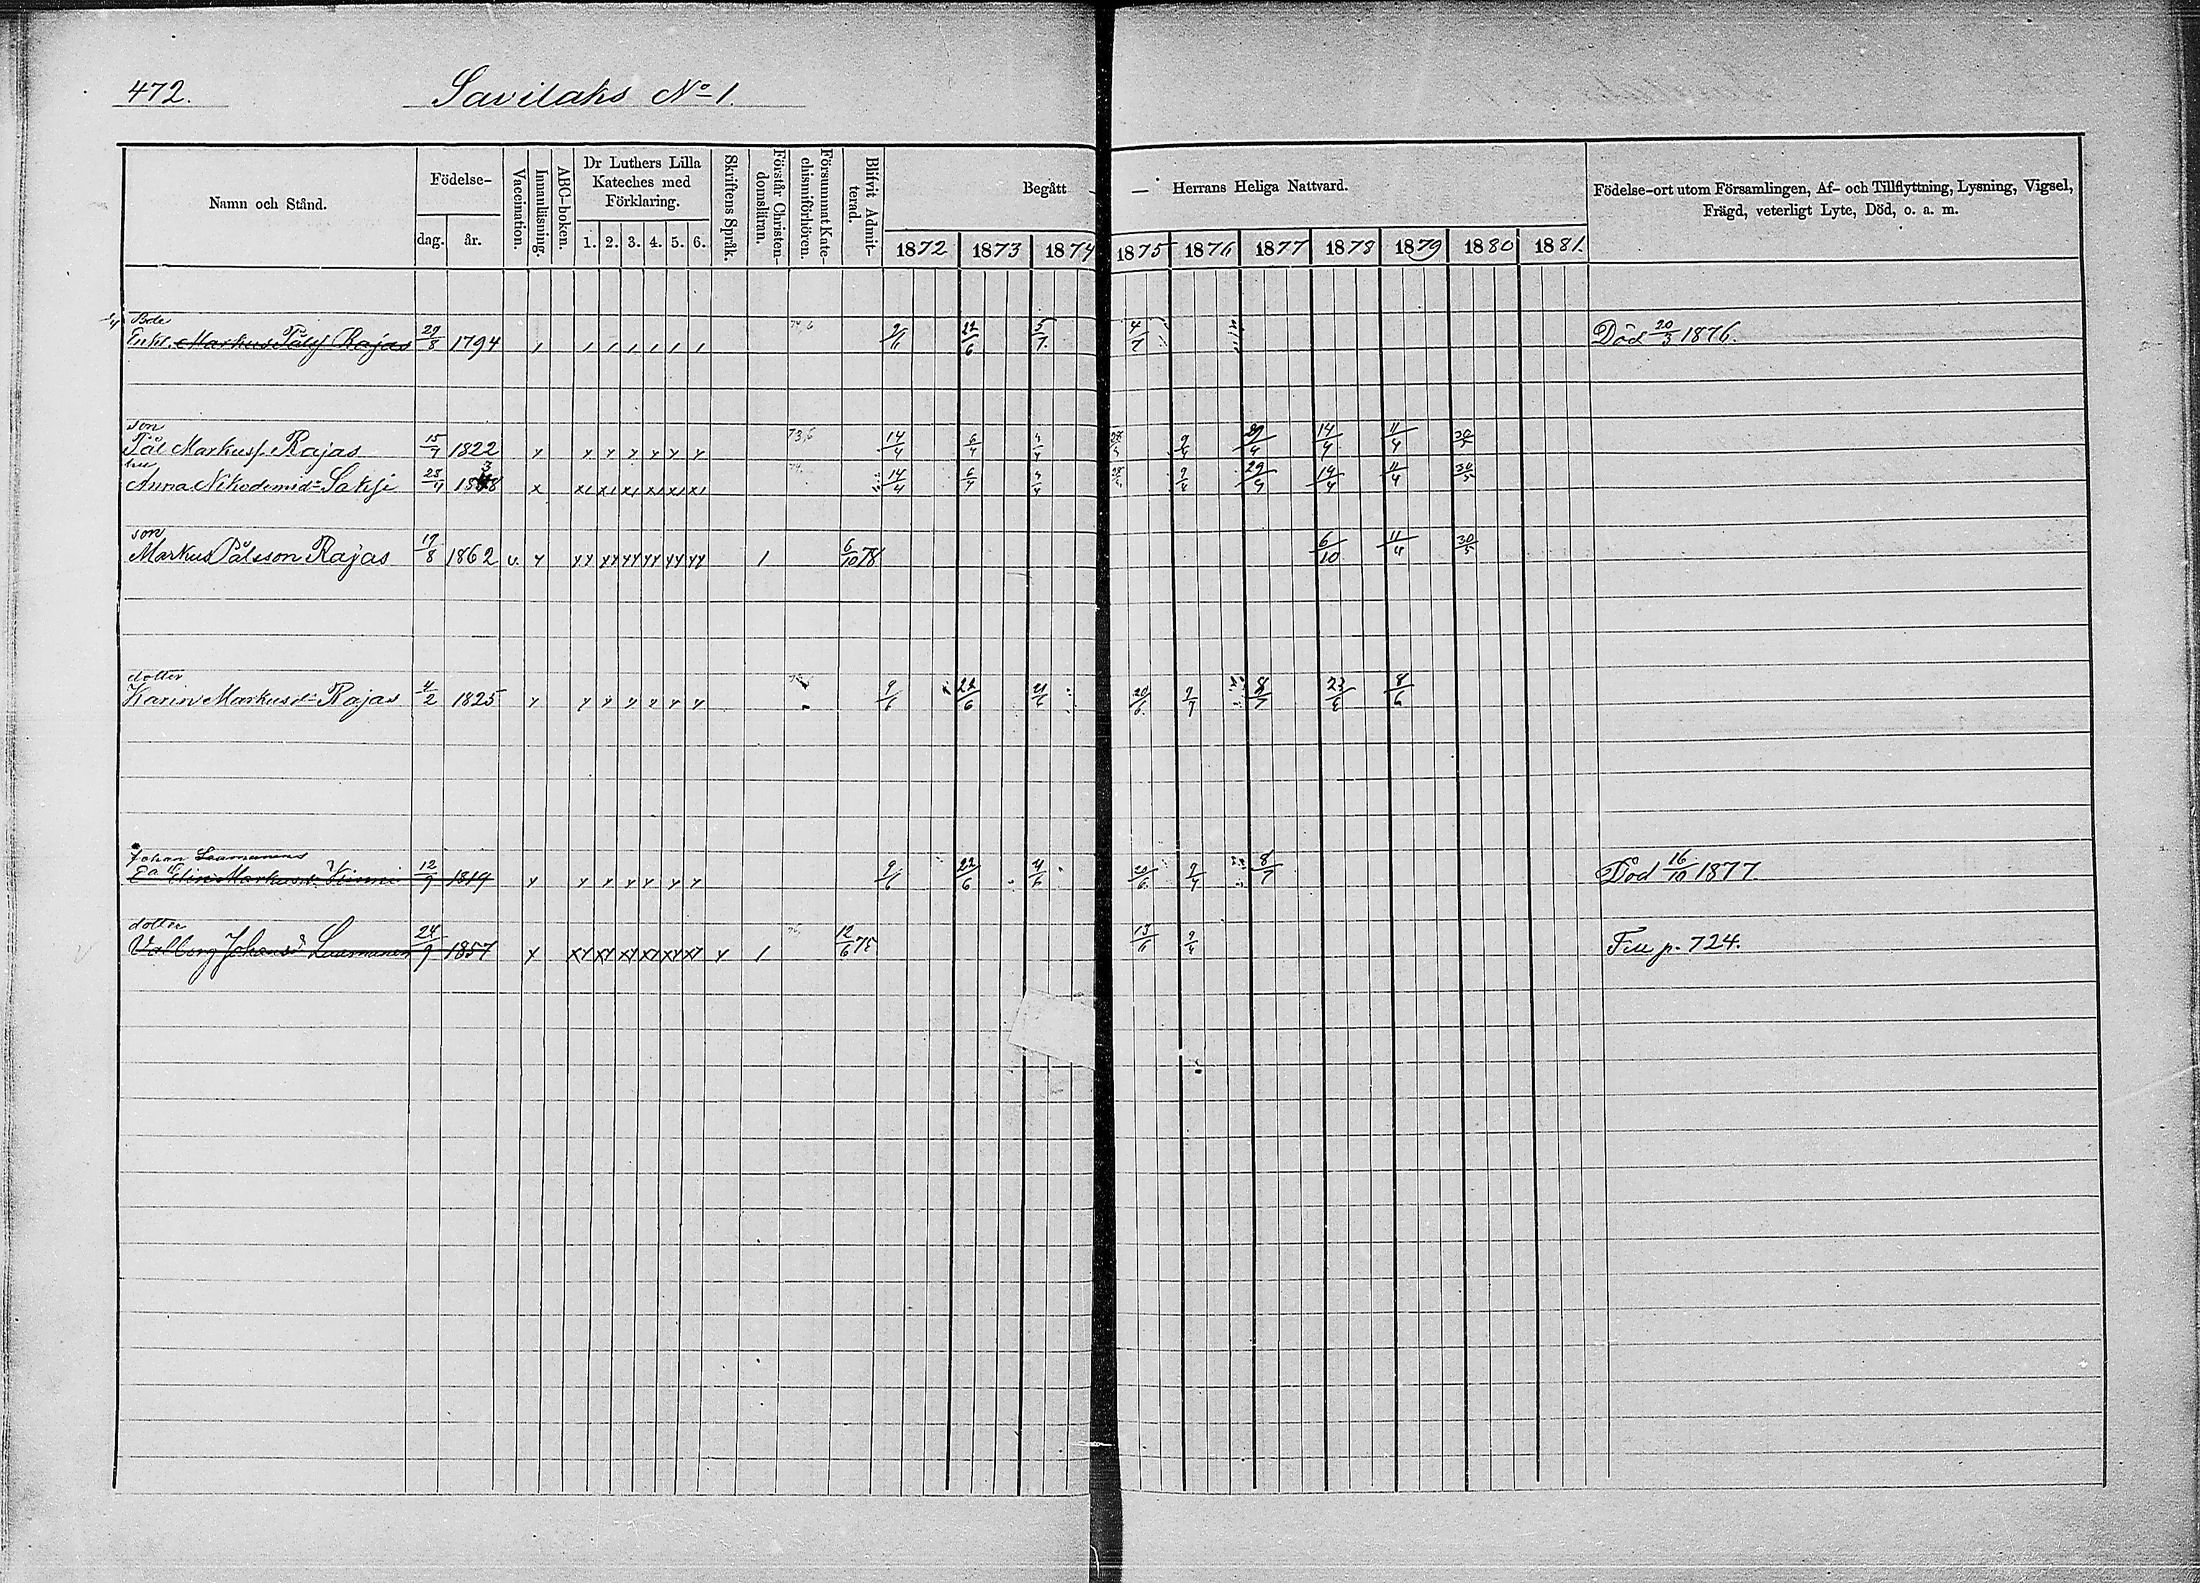 472.
Savilaks No 1.
Namn och Stånd.
Födelse-
dag.
år.
Vaccination.
Innanläsning.
ABC-boken.
Dr Luthers Lilla
Kateches med
Förklaring.
1. 2. 3. 4. 5. 6.
Skriftens Språk.
Förstår Christen-
domsläran.
Försummat Kate-
chismiförhören.
Blifvit Admit-
terad.
Begått — — Herrans Heliga Nattvard.
1872 1873 1874 1875 1876 1877 1878 1879 1880 1881.
Födelse-ort utom Församlingen, Af- och Tillflyttning, Lysning, Vigsel,
Frägd, veterligt Lyte, Död, o. a. m.
Bde
Enkl. Markus Pålss. Rajas 29/8 1794 9/6 22/6 5/7 4/7 Död 20/3 1876.
son
Pål Markuss. Rajas 15/7 1822 y y y y y y y 73,6 14/4 6/4 4/4 9/4 29/4 14/4 11/4 30/5
hu
Anna Nikodemid:r Sakji 28/4 1838 x xi xi xi xi xi xi 14/4 6/4 4/4 9/4 29/4 14/4 11/4 30/5
son
Markus Pålsson Rajas 17/8 1862 v. y yy yy yy yy yy yy 1 6/10 78 6/10 11/4 30/5
dotter
Karin Markusd:r Rajas 4/2 1825 y y y y y y y 9/6 22/6 21/6 20/6 9/4 8/7 23/6 8/6
Johan Laamanens
Ea Elin Markusd:r Kinnu 12/9 1819 y y y y y y y 9/6 22/6 21/6 20/6 9/4 8/7 Död 16/10 1877.
dotter
Valborg Johansd:r Laamanen 24/9 1857 y xy xy xy xy xy xy y 1 12/6 75 13/6 9/4 Till p. 724.